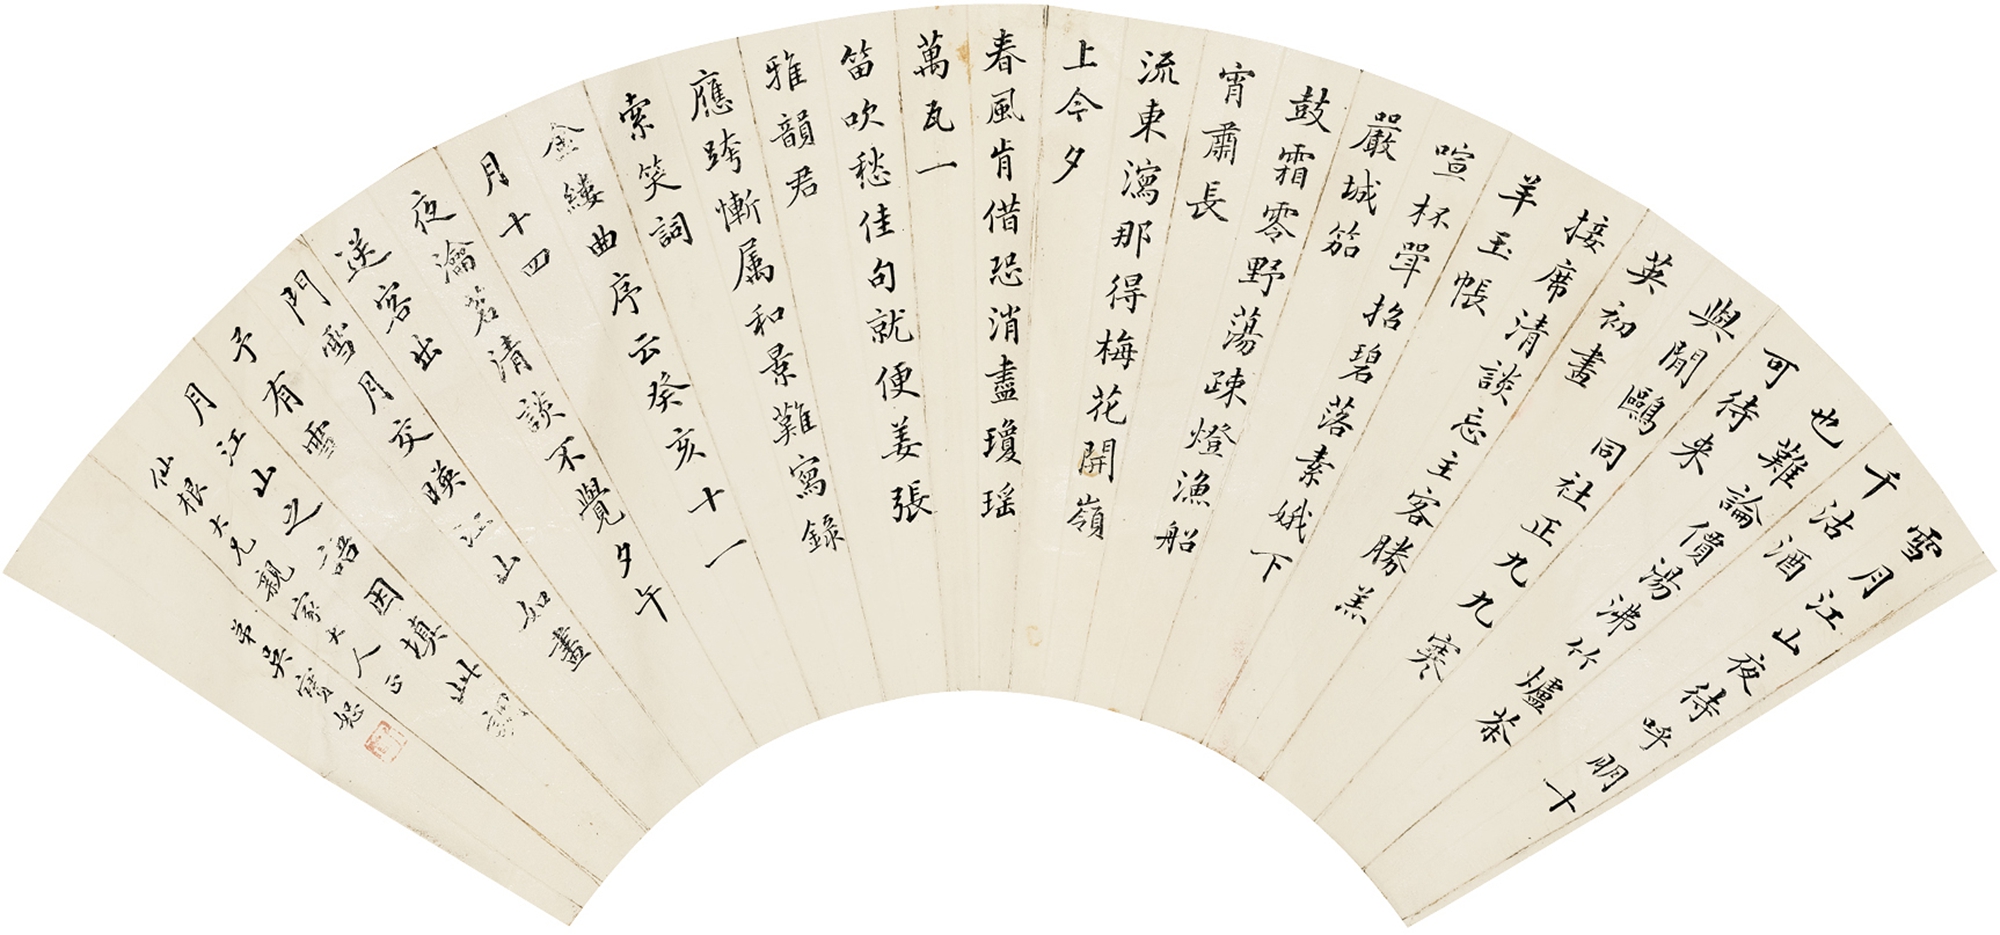 雪月江山夜待呼明十
千沽酒
也難論價湯沸竹爐茶
可待來
與閒鷗同社正九九寒
英初畫
接席清談忘主客勝羔
羊玉帳
喧杯斝招碧落素娥下
嚴城笳
鼓霜零野蕩疎燈漁船
宵肅長
流東瀉那得梅花開嶺
上今夕
春風肯借恐消盡瓊瑤
萬瓦一
笛吹愁佳句就便姜張
雅韻君
應跨慚属和景難寫錄
索笑詞
金縷曲序云癸亥十一
月十四
夜瀹茗清談不覺夕午
送客出
門雪月交暎江山如畫
予有雪
月江山之語因填此詞
仙根大兄親家大人正
弟吳寶恕